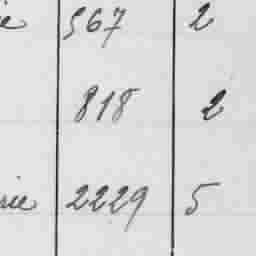 567 2
818 2
2229 5